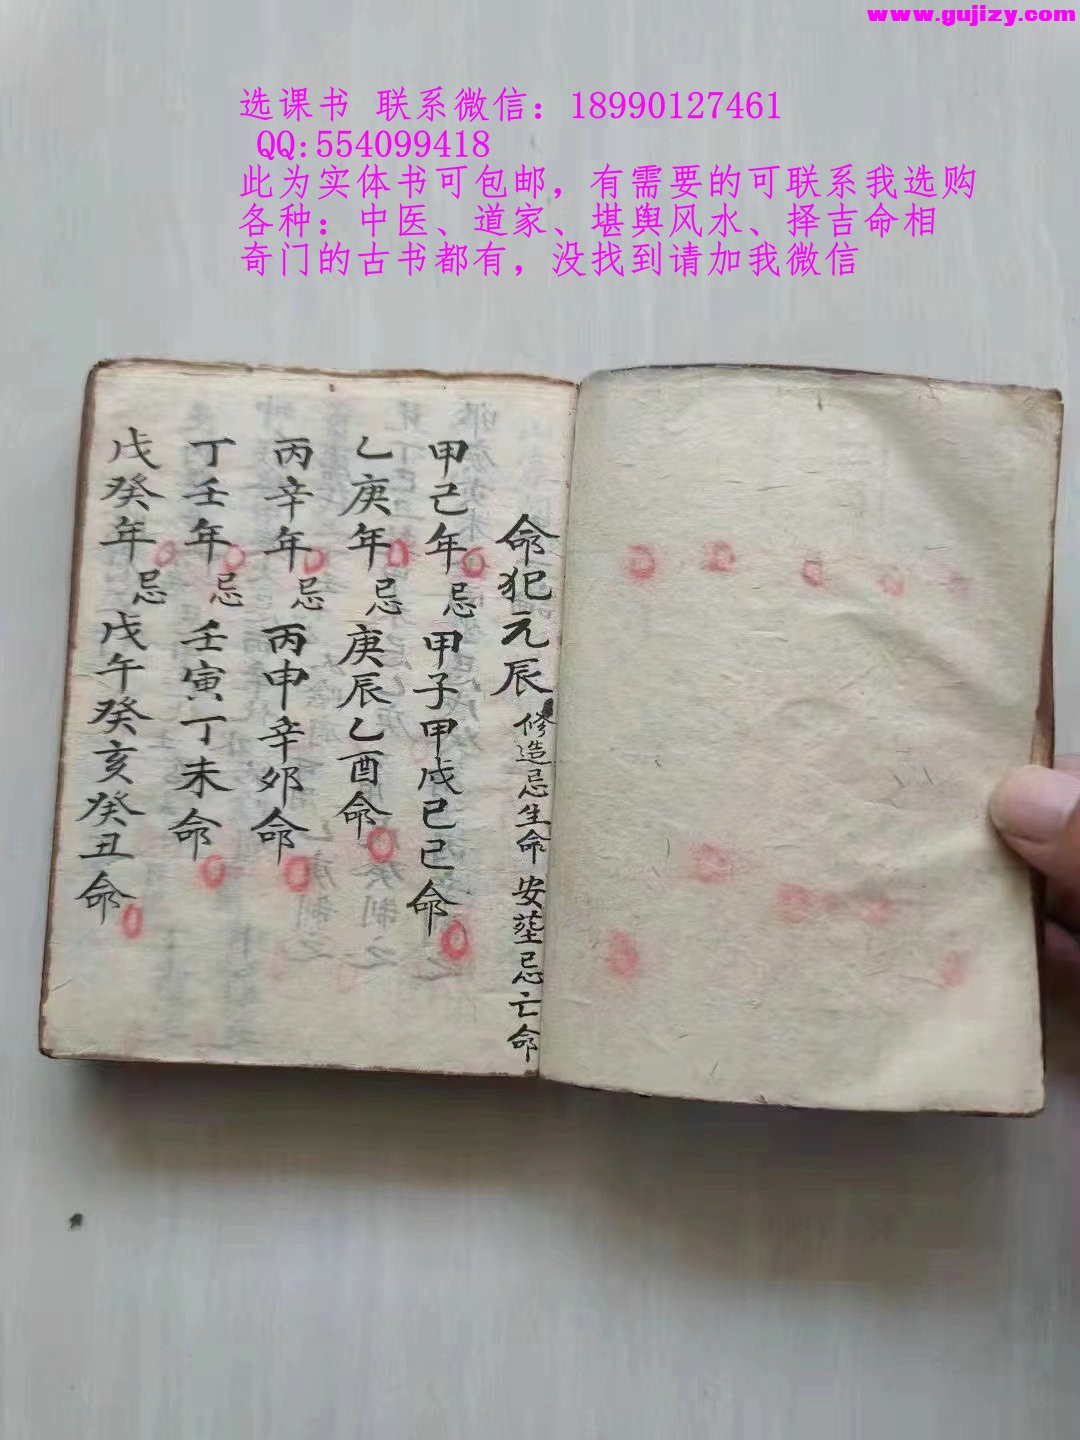 www.gujizy.com
选课书 联系微信：18990127461
QQ:554099418
此为实体书可包邮，有需要的可联系我选购
各种：中医、道家、堪舆风水、择吉命相
奇门的古书都有，没找到请加我微信
命犯元辰 修造忌生命 安茔忌亡命
甲己年忌甲子甲戌己巳命
乙庚年忌庚辰乙酉命
丙辛年忌丙申辛卯命
丁壬年忌壬寅丁未命
戊癸年忌戊午癸亥癸丑命